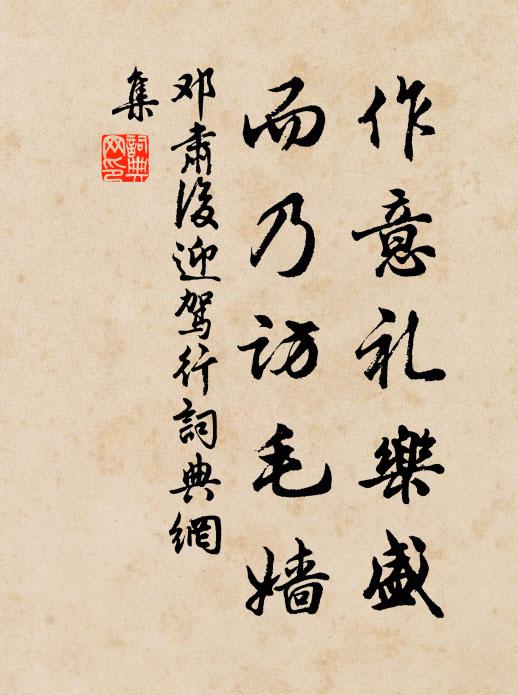 作意礼樂盛
而乃访毛嫱
邓肅後迎駕行詞典網
集
詞典
网印